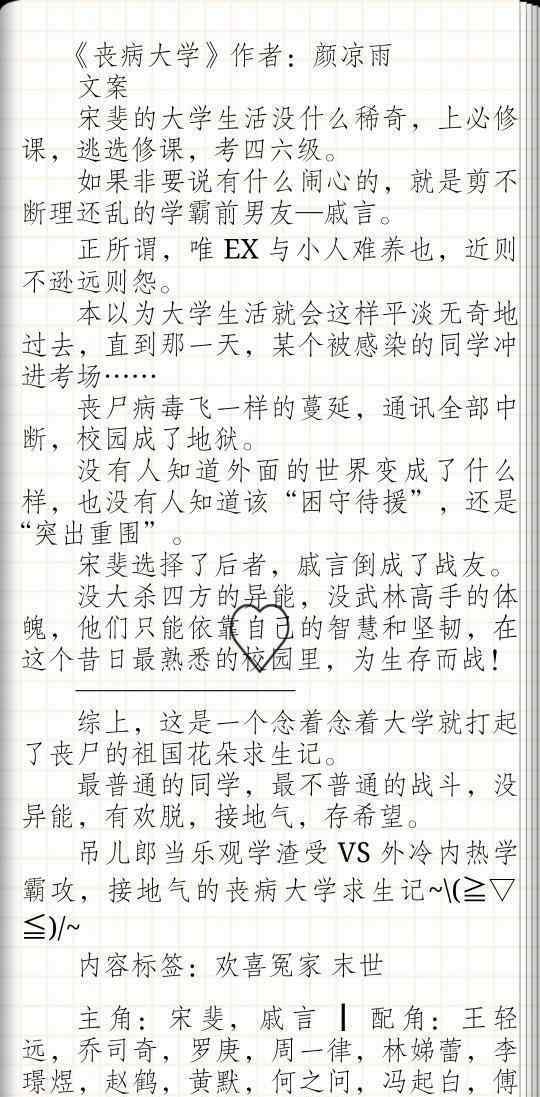 《丧病大学》作者：颜凉雨
文案
宋斐的大学生活没什么稀奇，上必修
课，逃选修课，考四六级。
如果非要说有什么闹心的，就是剪不
断理还乱的学霸前男友—戚言。
正所谓，唯 EX 与小人难养也，近则
不逊远则怨。
本以为大学生活就会这样平淡无奇地
过去，直到那一天，某个被感染的同学冲
进考场……
丧尸病毒飞一样的蔓延，通讯全部中
断，校园成了地狱。
没有人知道外面的世界变成了什么
样，也没有人知道该“困守待援”，还是
“突出重围”。
宋斐选择了后者，戚言倒成了战友。
没大杀四方的异能，没武林高手的体
魄，他们只能依靠自己的智慧和坚韧，在
这个昔日最熟悉的校园里，为生存而战！
————————————
综上，这是一个念着念着大学就打起
了丧尸的祖国花朵求生记。
最普通的同学，最不普通的战斗，没
异能，有欢脱，接地气，存希望。
吊儿郎当乐观学渣受 VS 外冷内热学
霸攻，接地气的丧病大学求生记~\(≧▽
≦)/~
内容标签：欢喜冤家 末世
主角：宋斐，戚言 ┃ 配角：王轻
远，乔司奇，罗庚，周一律，林娣蕾，李
璟煜，赵鹤，黄默，何之问，冯起白，傅